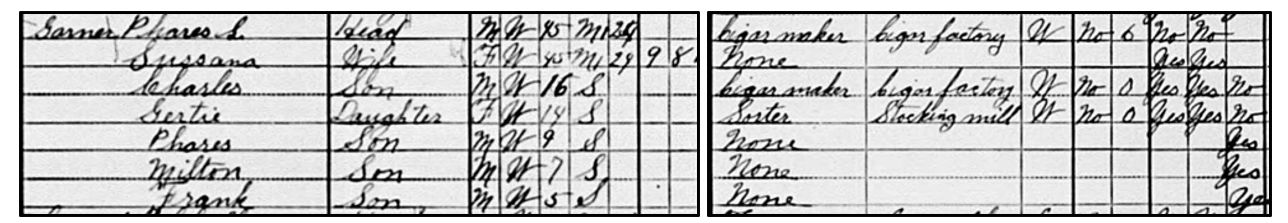 Garner Phares S. Head M W 45 M1 24 cigar maker cigar factory W No 6 No No
Sussana Wife F W 45 M1 24 9 8 None Yes Yes
Charles Son M W 16 S cigar maker cigar factory W No 0 Yes Yes No
Gertie Daughter F W 14 S Sorter Stocking mill W No 0 Yes Yes No
Phares Son M W 9 S None Yes
Milton Son M W 7 S None Yes
Frank Son M W 5 S None Yes